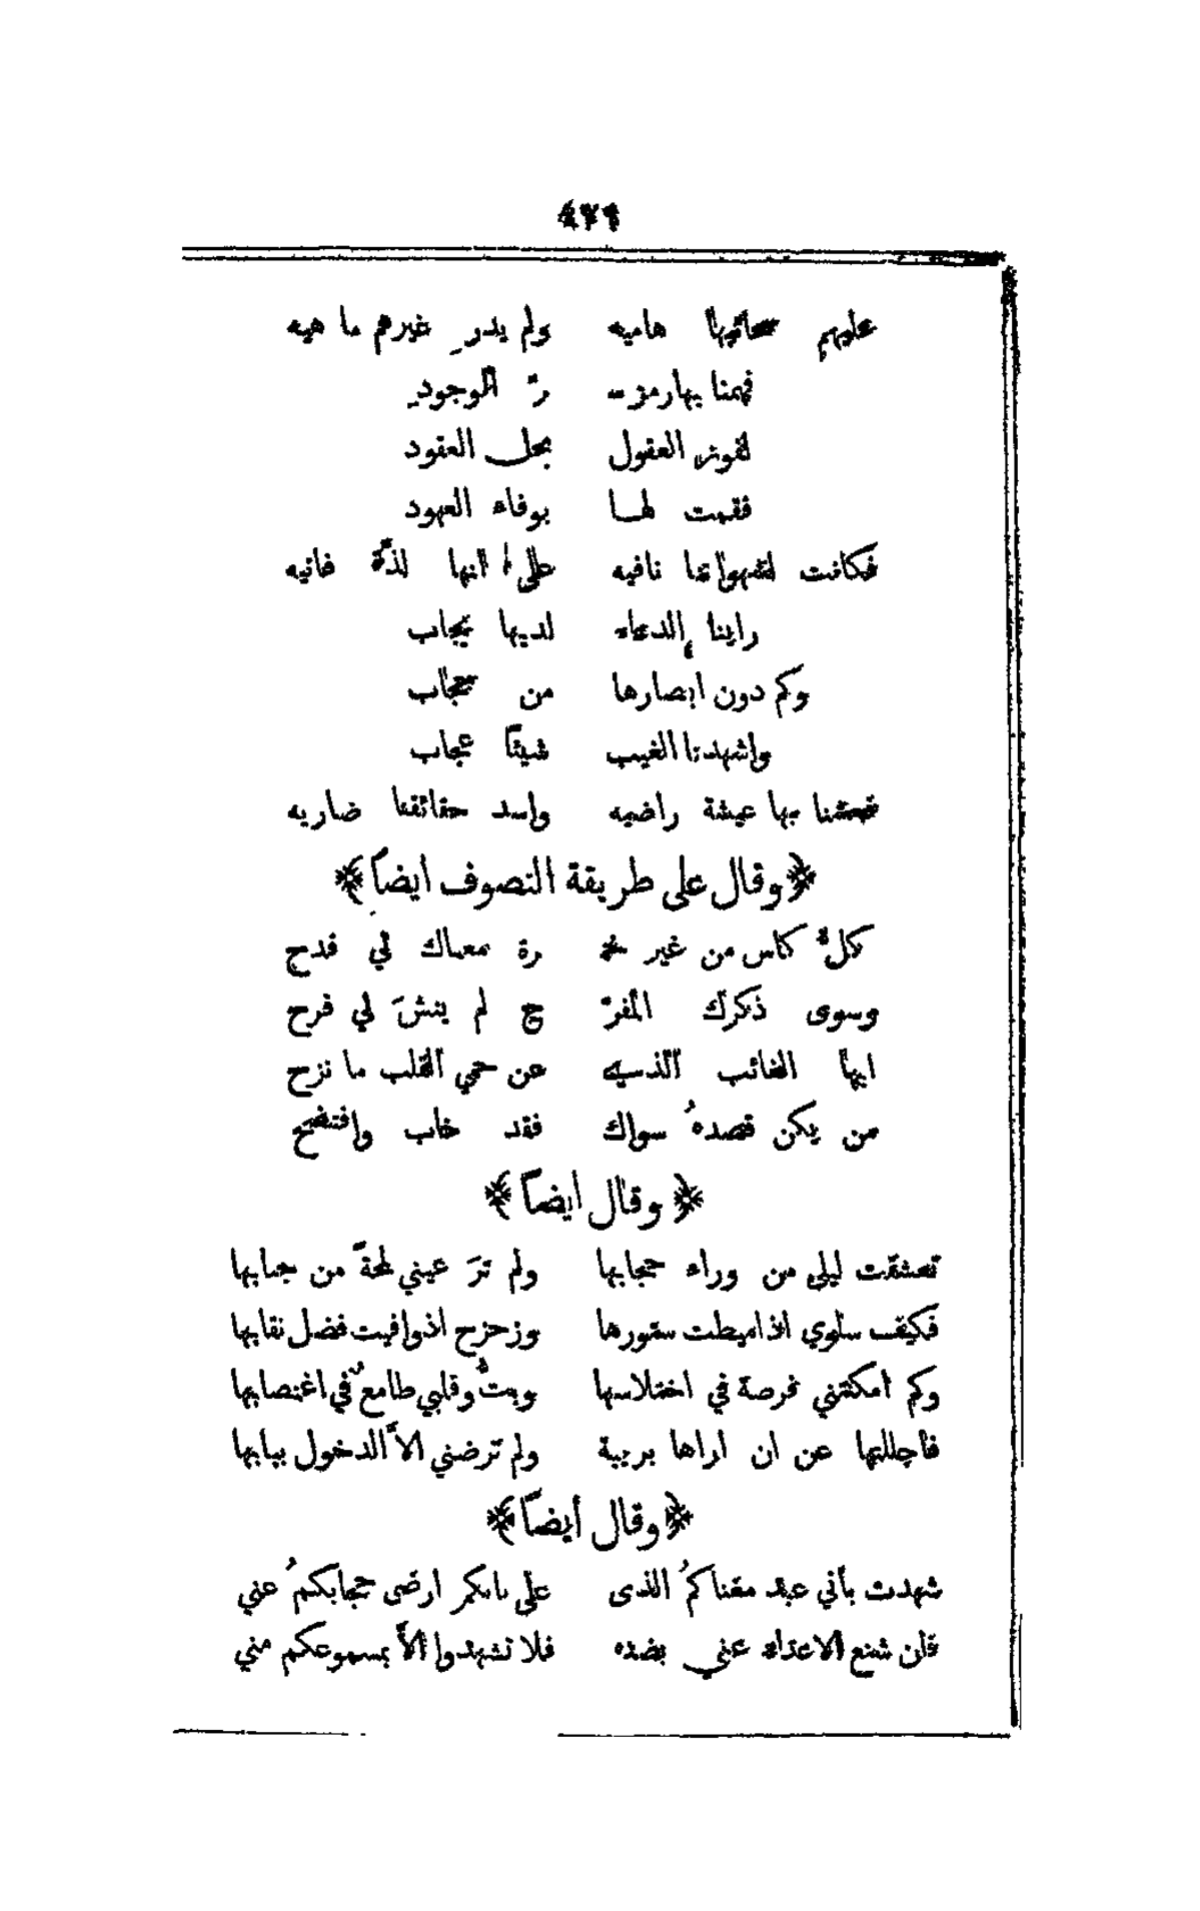 عليهم سحائبها هاميه ولم يدرِ غيرهم ما هيه
فهمنا بها رمز سـ رّ الوجودِ
لفوز العقول بحل العقود
فقمت لها بوفاء العهود
فكانت لشهواتنا نافيه على انها لذَّة فانيه
راينا الدعاء لديها يجاب
وكم دون ابصارها من حجاب
واشهدنا الغيب شيئًا عجاب
فعشنا بها عيشة راضيه واسد حقائقنا ضاريه
﴿وقال على طريقة التصوف ايضاً﴾
كلُّ كاس من غير خمـ رة معناك لي قدح
وسوى ذكرك المفرّ ح لم ينشَ لي فرح
ايها الغائب الذي عن حمى القلب ما نزح
من يكن قصدهُ سواك فقد خاب وافتضح
﴿وقال ايضاً﴾
تعشقت ليلى من وراء حجابها ولم ترَ عيني لمحةً من جنابها
فكيف سلوي اذا ميطت ستورها وزحزح اذ وافيت فضل نقابها
وكم امكنتني فرصة في اختلاسها وبتُّ وقلبي طامعٌ في اغتصابها
فاجللتها عن ان اراها بريبة ولم ترضني الاَّ الدخول ببابها
﴿وقال أيضاً﴾
شهدت بأني عبد مغناكمُ الذى على بابكم ارضى حجابكمُ عني
فان شنع الاعداء عني بضده فلا تشهدوا الاَّ بمسموعكم مني